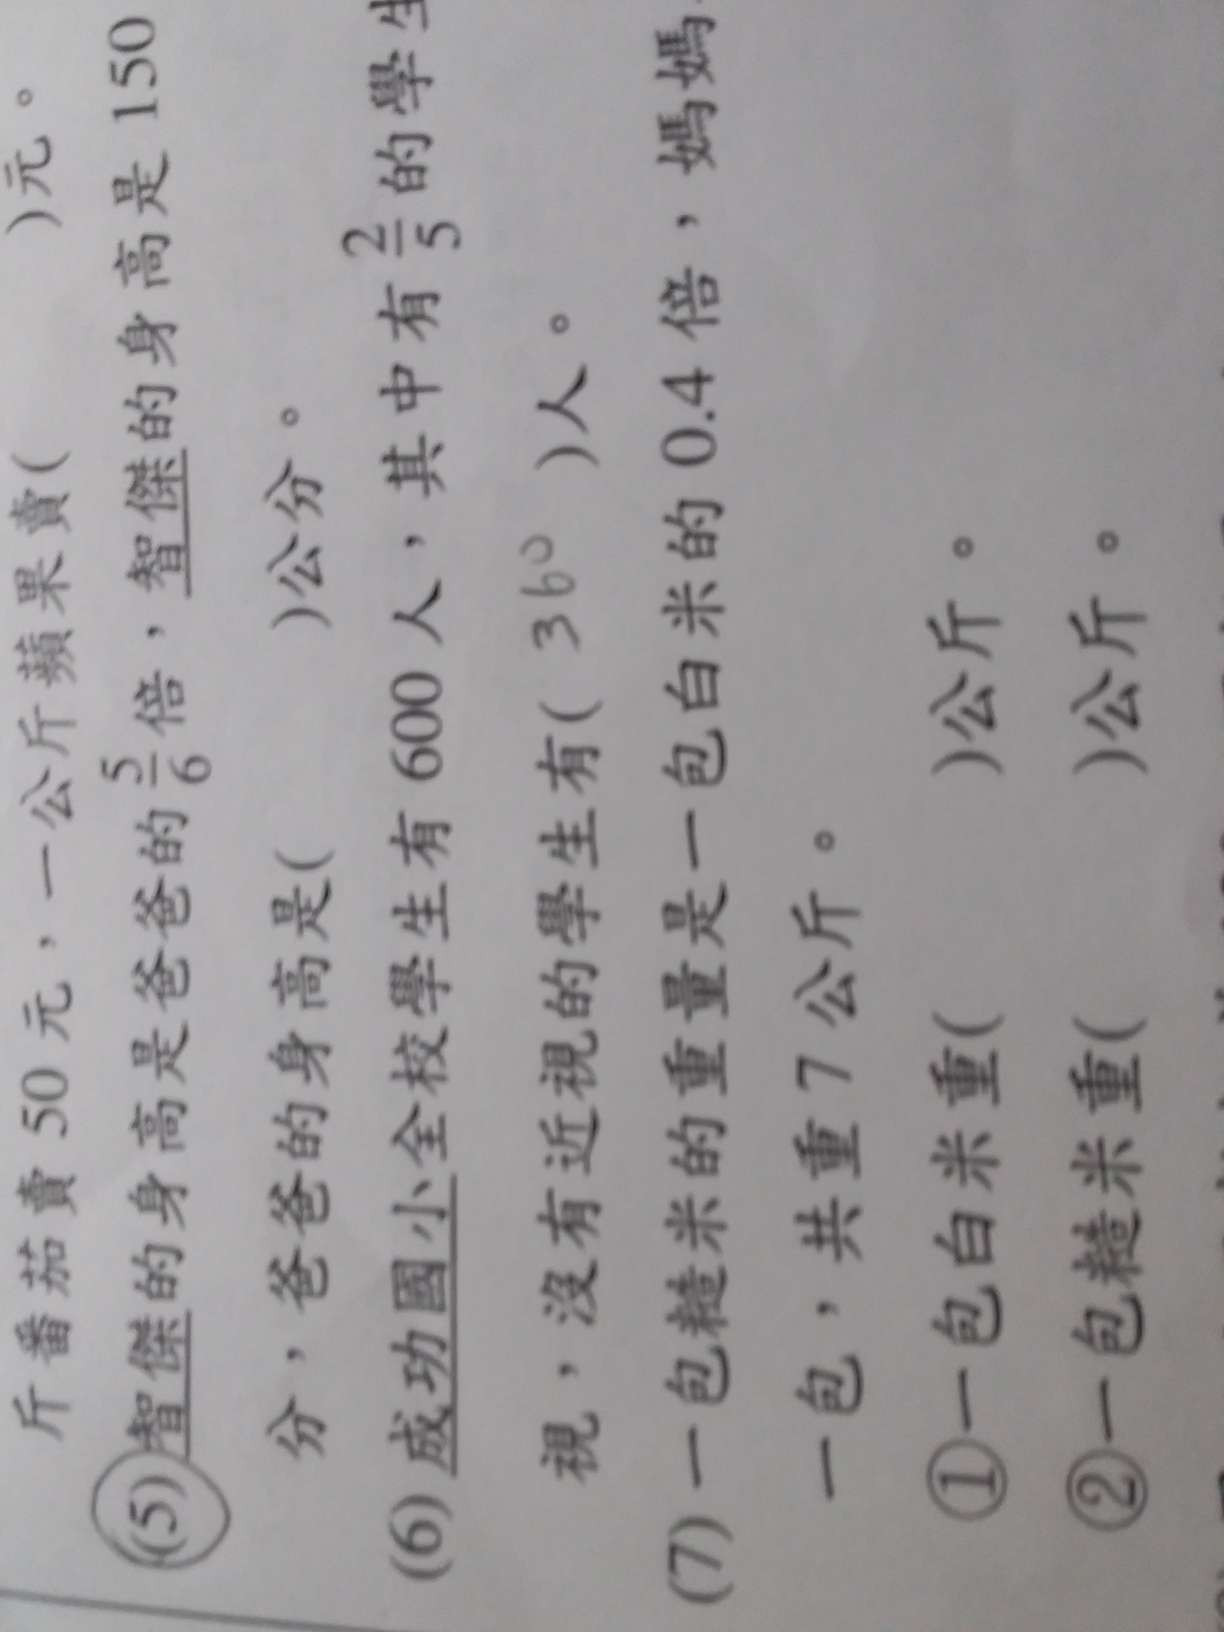 斤番茄賣 50 元,一公斤蘋果賣( )元。
(5) 智傑的身高是爸爸的 5/6 倍,智傑的身高是 150
分,爸爸的身高是( )公分。
(6) 成功國小全校學生有 600 人,其中有 2/5 的學生
視,沒有近視的學生有( 360 )人。
(7) 一包糙米的重量是一包白米的 0.4 倍,媽媽
一包,共重 7 公斤。
①一包白米重( )公斤。
②一包糙米重( )公斤。